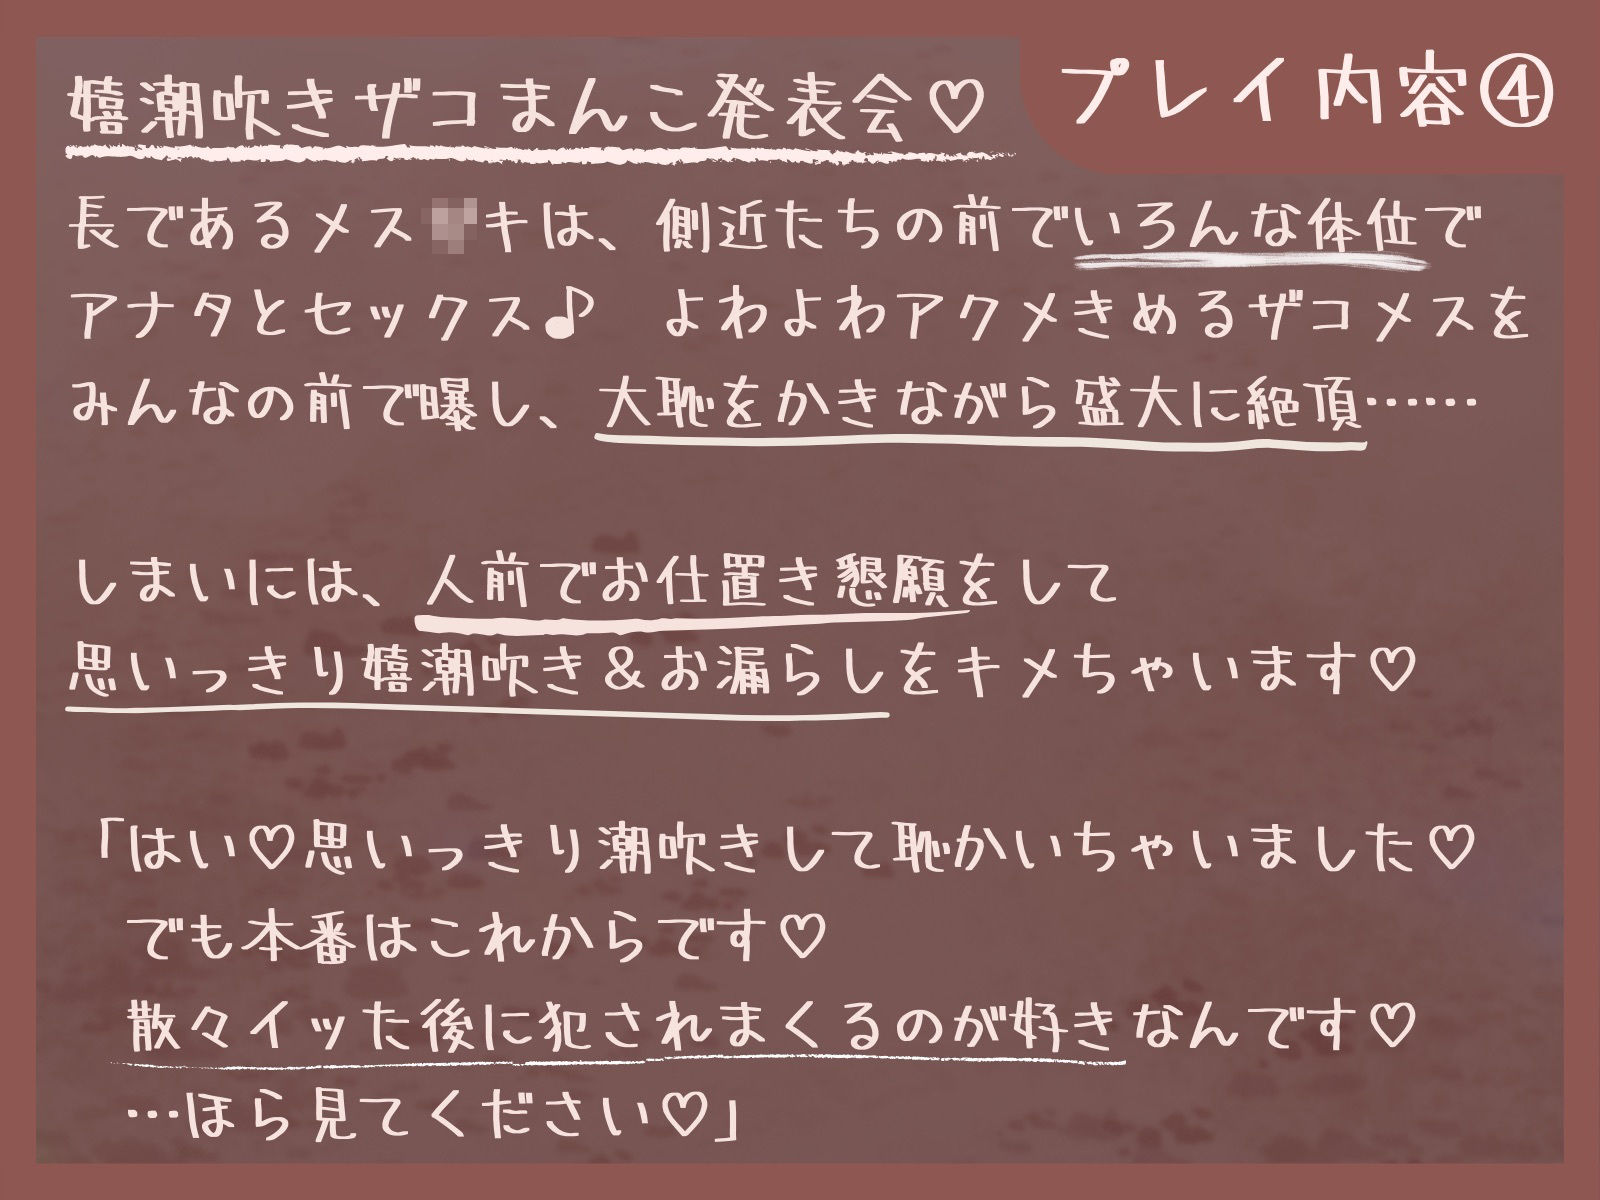 プレイ内容④
嬉潮吹きザコまんこ発表会♡
長であるメス キは、側近たちの前でいろんな体位で
アナタとセックス♪　よわよわアクメきめるザコメスを
みんなの前で曝し、大恥をかきながら盛大に絶頂……
しまいには、人前でお仕置き懇願をして
思いっきり嬉潮吹き＆お漏らしをキメちゃいます♡
「はい♡思いっきり潮吹きして恥かいちゃいました♡
でも本番はこれからです♡
散々イッた後に犯されまくるのが好きなんです♡
…ほら見てください♡」